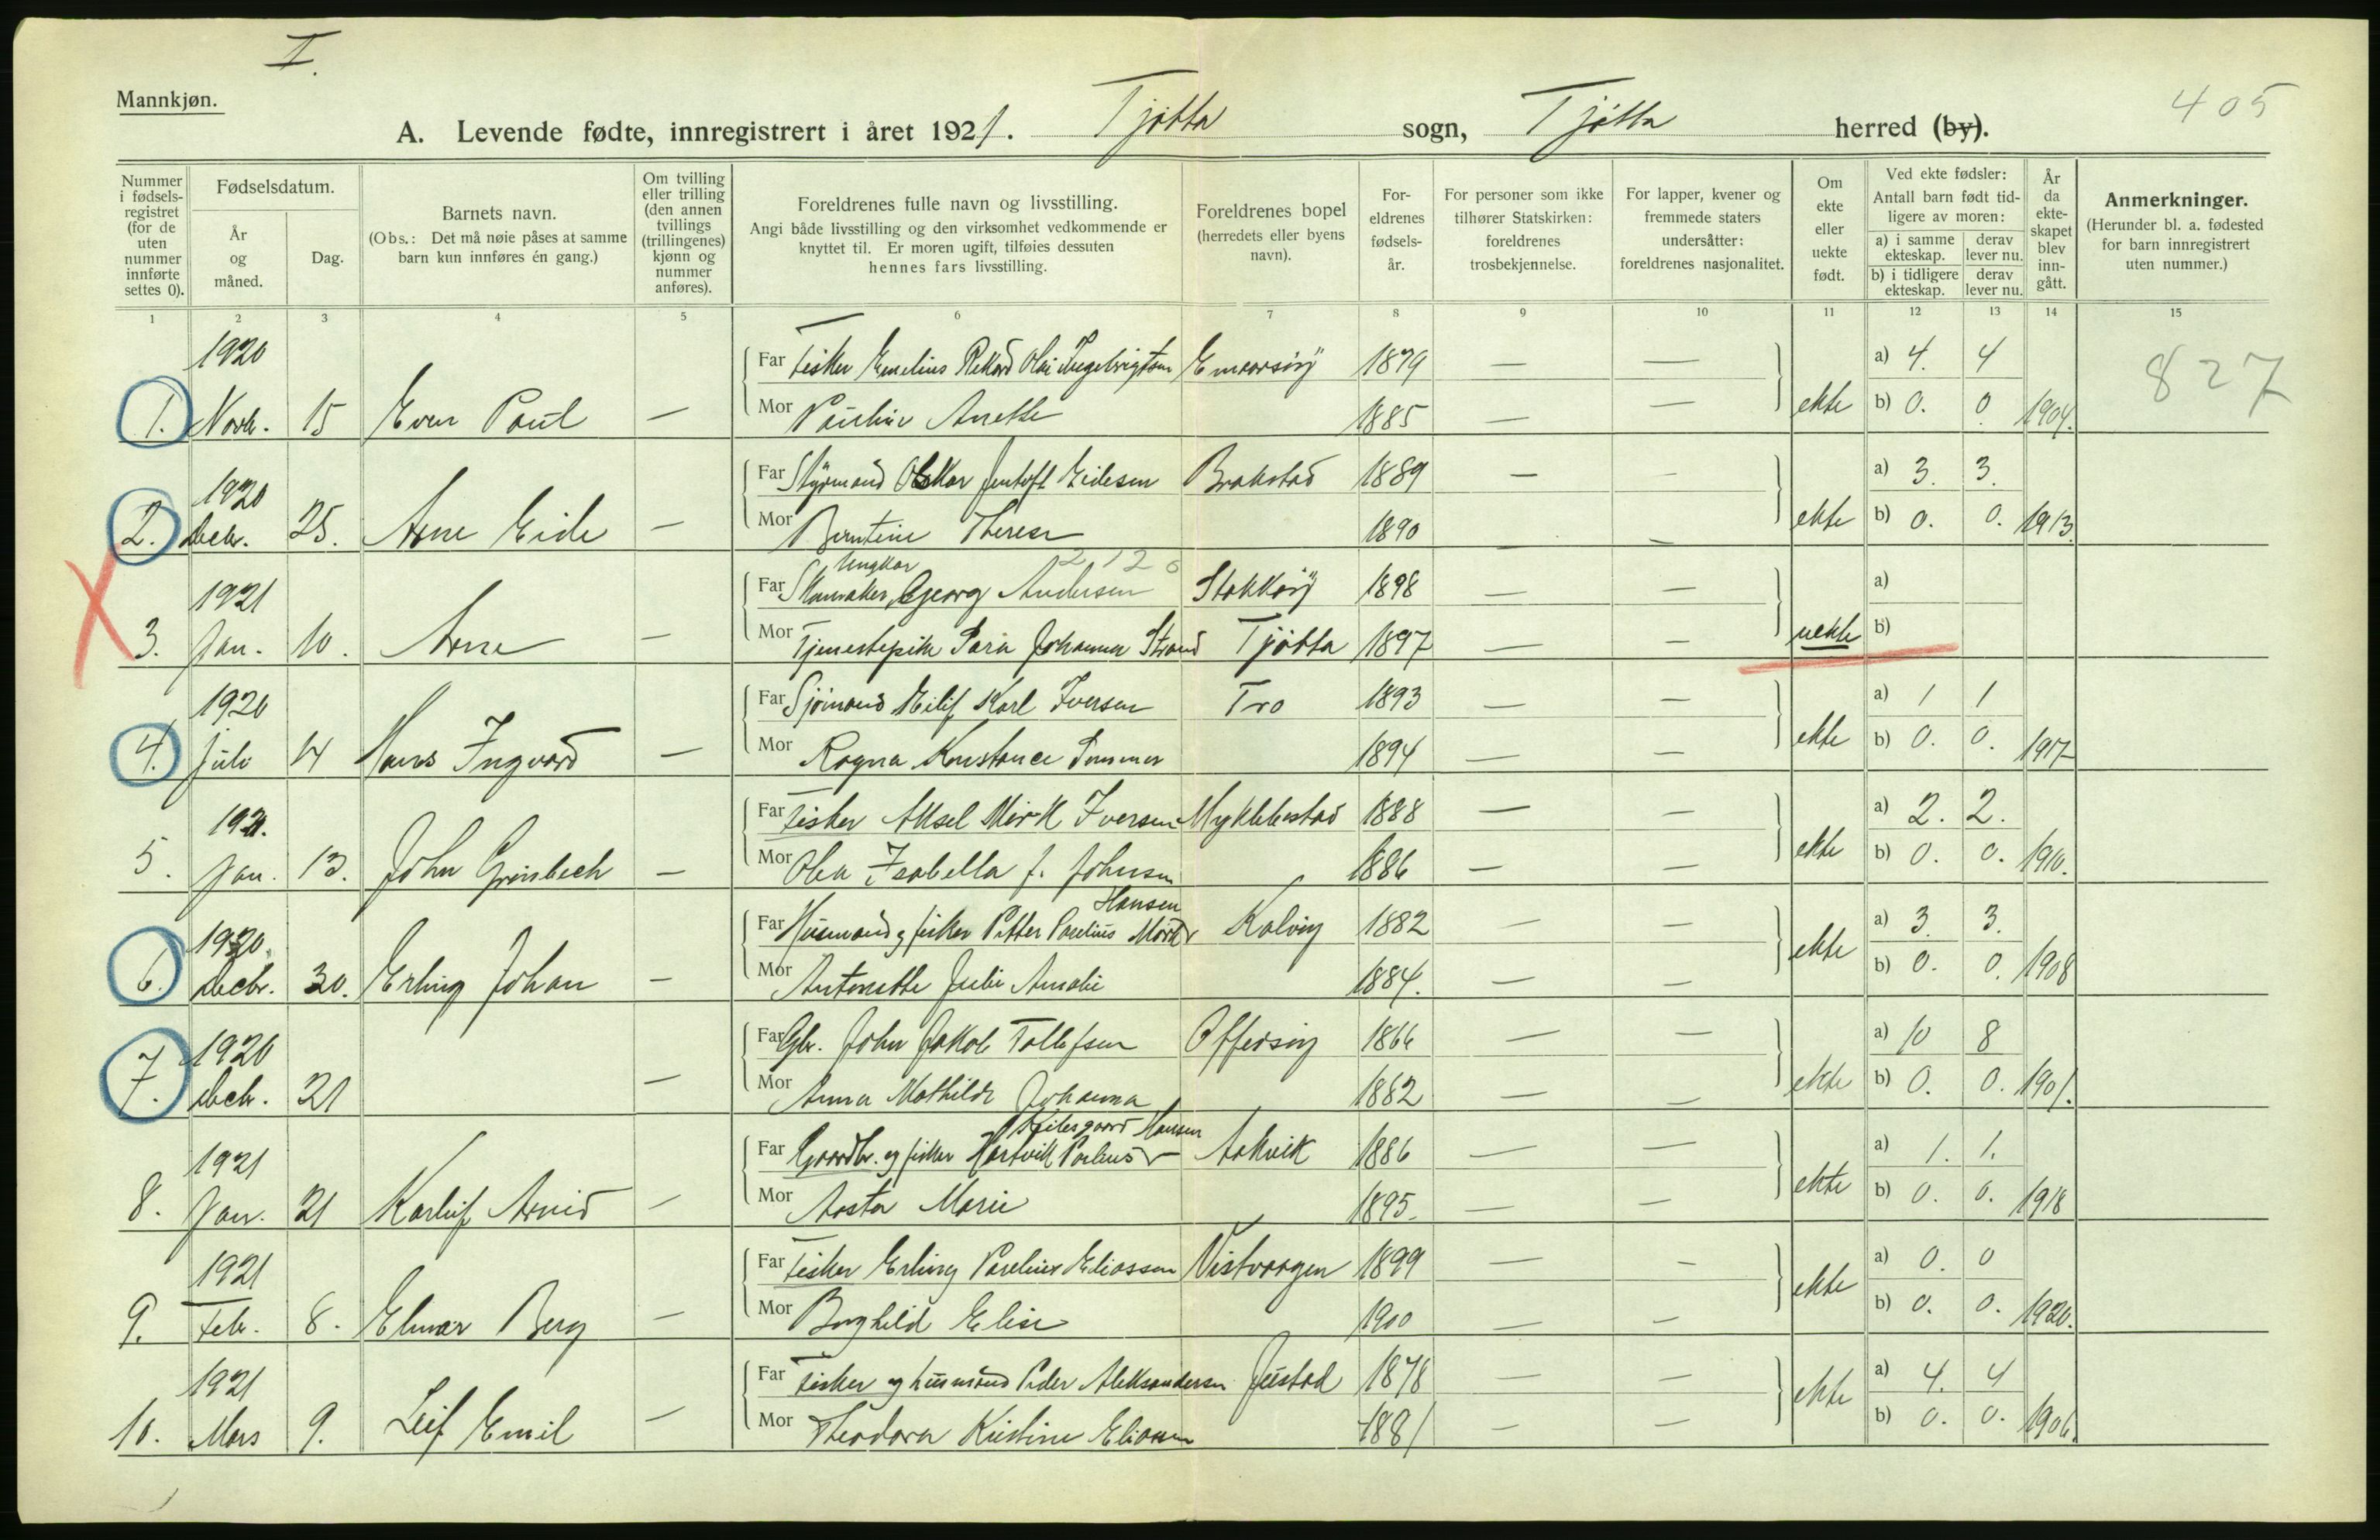 I.
Mannkjøn.
405
A. Levende fødte, innregistrert i året 1921. Tjøtta sogn, Tjøtta herred (by).
Nummer i fødselsregistret (for de uten nummer innførte settes 0).
Fødselsdatum.
År og måned.
Dag.
Barnets navn.
(Obs.: Det må nøie påses at samme barn kun innføres én gang.)
Om tvilling eller trilling (den annen tvillings (trillingenes) kjønn og nummer anføres).
Foreldrenes fulle navn og livsstilling.
Angi både livsstilling og den virksomhet vedkommende er knyttet til. Er moren ugift, tilføies dessuten hennes fars livsstilling.
Foreldrenes bopel (herredets eller byens navn).
Foreldrenes fødselsår.
For personer som ikke tilhører Statskirken: foreldrenes trosbekjennelse.
For lapper, kvener og fremmede staters undersåtter: foreldrenes nasjonalitet.
Om ekte eller uekte født.
Ved ekte fødsler:
Antall barn født tidligere av moren:
a) i samme ekteskap. derav lever nu.
b) i tidligere ekteskap. derav lever nu.
År da ekteskapet blev inngått.
Anmerkninger.
(Herunder bl. a. fødested for barn innregistrert uten nummer.)
1 2 3 4 5 6 7 8 9 10 11 12 13 14 15
1920 Far Fisker 1879 — — a) 4. 4 827
1. Novb. 15 Even Paul — Mor Pauline Anette 1885 — — ekte b) 0. 0 1904.
1920 Far Styrmand Oskar Jentoft Eidesen Brakstad 1889 — — a) 3. 3.
2. Decb. 25. Arne Eide — Mor Berntine Therese 1890 — — ekte b) 0. 0. 1913.
Ungkar 2120
1921 Far Skomaker Georg Andersen Stokkøy 1898 — — a)
3. Jan. 10. Arne — Mor Tjenestepike Sara Johanna Strand Tjøtta 1897 — — uekte b)
1920 Far Sjømand Eilif Karl Iversen Tro 1893 — — a) 1 1
4. Juli 14 Hans Ingvard — Mor Ragna Konstance 1894 — — ekte b) 0. 0. 1917
1921. Far Fisker Aksel Mørk Iversen Myklebostad 1888 — — a) 2. 2.
5. Jan. 13. John Grønbech — Mor Olea Isabella J. Johnsen 1886 — — ekte b) 0. 0. 1910.
Hansen
1920. Far Husmand og fisker Petter Parelius Mørk Kalvig 1882 — — a) 3. 3.
6. Decbr. 30. Erling Johan — Mor Antonette Julie Amalie 1884. — — ekte b) 0. 0. 1908
1920 Far Gbr. John Jakob Tollefsen Offersøy 1866 — — a) 10 8
7. Decb. 21 — Mor Anna Mathilde Johanna 1882 — — ekte b) 0. 0. 1901.
Hansen
1921 Far Gaardbr. og fisker Hartvik 1886 — — a) 1. 1.
8. Jan. 21 Karluf Arnid — Mor Aasta Marie 1895. — — ekte b) 0. 0. 1918
1921 Far Fisker Erling Parelius Eliassen Vistvaagen 1899 — — a) 0. 0
9. Feb. 8. Elmar Berg — Mor Borghild Elise 1900 — — ekte b) 0. 0. 1920.
1921 Far Fisker og husmand Peder Aleksandersen Justad 1878 — — a) 4. 4
10. Mars 9. Leif Emil — Mor Theodora Kristine Eliassen 1881 — — ekte b) 0. 0. 1906.